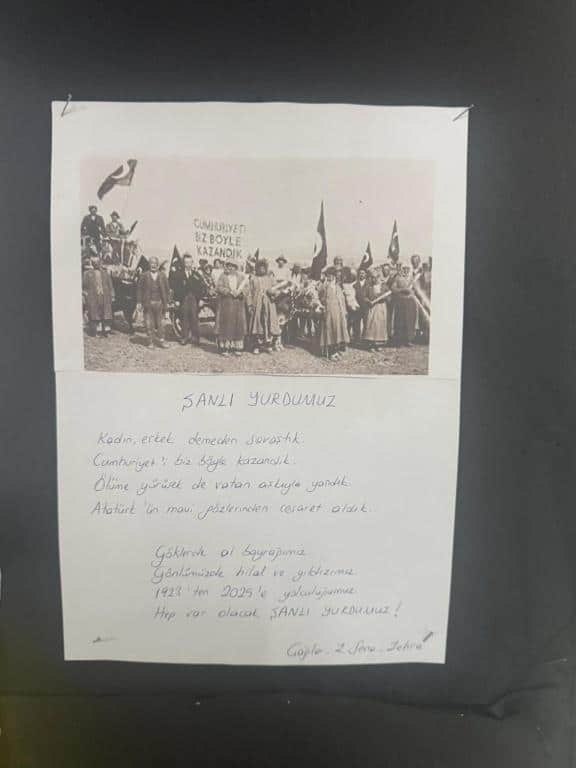 CUMHURİYETİ
BİZ BÖYLE
KAZANDIK
ŞANLI YURDUMUZ
Kadın, erkek demeden savaştık.
Cumhuriyet'i biz böyle kazandık.
Ölüme yürüsek de vatan aşkıyla yandık
Atatürk'ün mavi gözlerinden cesaret aldık..
Göklerde al bayrağımız
Gönlümüzde hilal ve yıldızımız
1923'ten 2025'e yolculuğumuz
Hep var olacak ŞANLI YURDUMUZ!
Z. Sena - Zehra